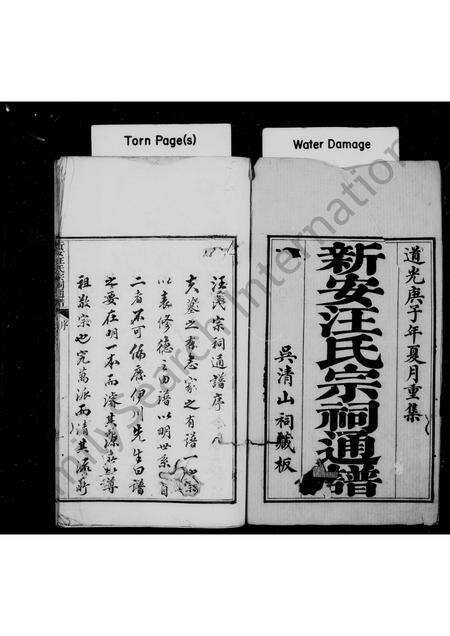 Torn Page(s)
Water Damage
道光庚子年夏月重集
新安汪氏宗祠通譜
吳清山祠藏板
汪氏宗祠通譜序
夫墓之有志家之有譜一以
以表修德
二者不可偏廢伊川先生曰譜
之要在明一本而濬其源
祖敬宗也究萬派而清其流所
新安汪氏宗祠通譜
序
FamilySearch International